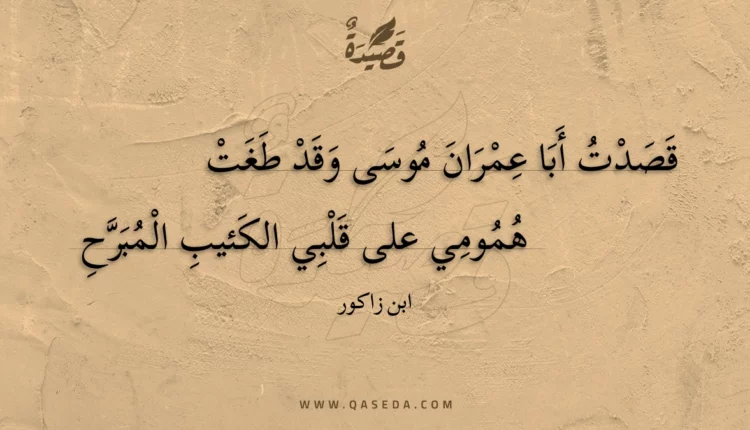 قَصِيدَةٌ
قَصَدْتُ أَبَا عِمْرَانَ مُوسَى وَقَدْ طَغَتْ
هُمُومِي على قَلْبِي الكَئيبِ الْمُبَرَّحِ
ابن زاكور
WWW.QASEDA.COM